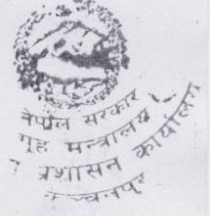 नेपाल सरकार
गृह मन्त्रालय
प्रशासन कार्यालय